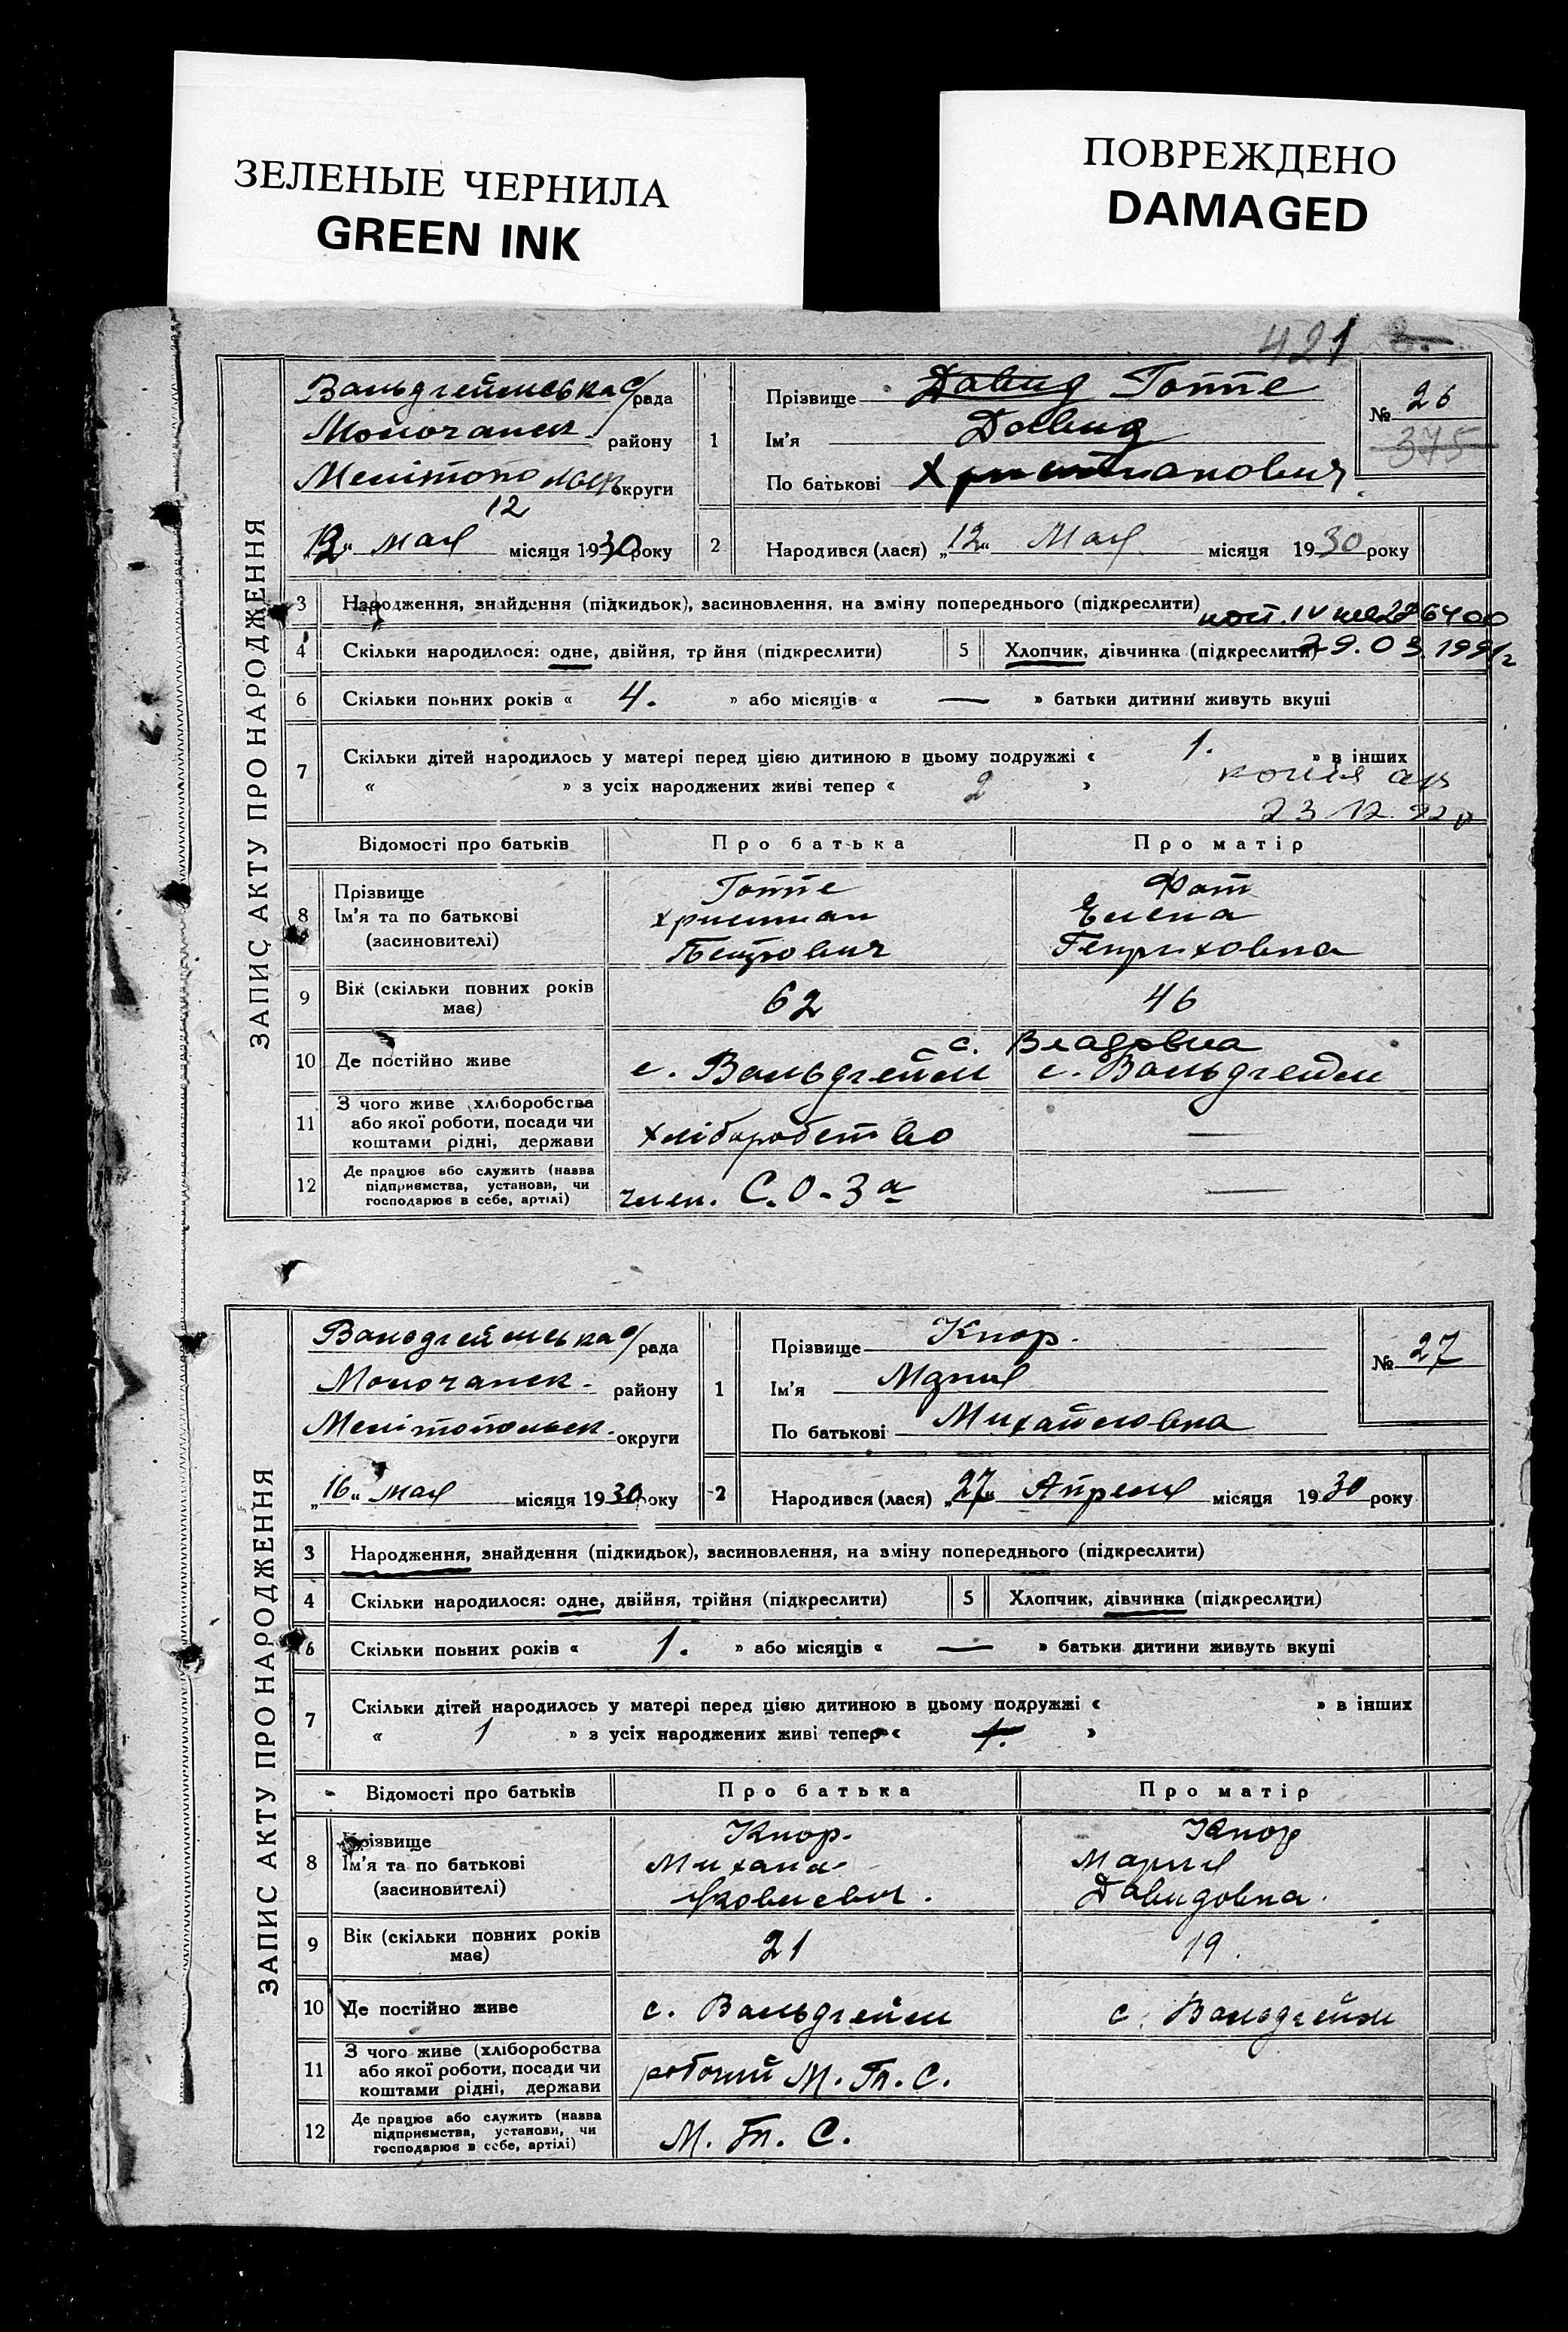 ЗЕЛЕНЫЕ ЧЕРНИЛА
GREEN INK
ПОВРЕЖДЕНО
DAMAGED
421
ЗАПИС АКТУ ПРО НАРОДЖЕННЯ
Вальдгеймська с/рада
Молочанск. району
округи
12
"12" мая місяця 1930 року
1
Прізвище Давид Гоппе
Ім'я Давид
По батькові Христианович
№ 26
375
2
Народився (лася) "12" Мая місяця 1930 року
3 Народження, знайдення (підкидьок), засиновлення, на зміну попереднього (підкреслити)
29.03.1991г
4 Скільки народилося: одне, двійня, трійня (підкреслити) 5 Хлопчик, дівчинка (підкреслити)
6 Скільки повних років « 4. » або місяців « — » батьки дитини живуть вкупі
7 Скільки дітей народилось у матері перед цією дитиною в цьому подружжі « 1. » в інших
« » з усіх народжених живі тепер « 2 »
копия
23 12 92
Відомості про батьків Про батька Про матір
8 Прізвище Гоппе Фот
Ім'я та по батькові Христиан Елена
(засиновителі) Петрович Генриховна
9 Вік (скільки повних років має) 62 46
с. Владовка
10 Де постійно живе с. Вальдгейм с. Вальдгейм
11 З чого живе (хліборобства або якої роботи, посади чи коштами рідні, держави хліборобство —
12 Де працює або служить (назва підприємства, установи, чи господарює в себе, артілі) член. С.О-За —
ЗАПИС АКТУ ПРО НАРОДЖЕННЯ
Вальдгеймська с/рада
Молочанск. району
Мелітопольск. округи
"16" мая місяця 1930 року
1
Прізвище Кнор.
Ім'я Мария
По батькові Михайловна
№ 27
2
Народився (лася) "27" Апреля місяця 1930 року
3 Народження, знайдення (підкидьок), засиновлення, на зміну попереднього (підкреслити)
4 Скільки народилося: одне, двійня, трійня (підкреслити) 5 Хлопчик, дівчинка (підкреслити)
6 Скільки повних років « 1. » або місяців « — » батьки дитини живуть вкупі
7 Скільки дітей народилось у матері перед цією дитиною в цьому подружжі « » в інших
« 1 » з усіх народжених живі тепер « 1. »
Відомості про батьків Про батька Про матір
8 Прізвище Кнор. Кнор
Ім'я та по батькові Михаил Мария
(засиновителі) Яковлевич. Давидовна.
9 Вік (скільки повних років має) 21 19.
10 Де постійно живе с. Вальдгейм с. Вальдгейм
11 З чого живе (хліборобства або якої роботи, посади чи коштами рідні, держави робочий М.Т.С.
12 Де працює або служить (назва підприємства, установи, чи господарює в себе, артілі) М.Т.С.